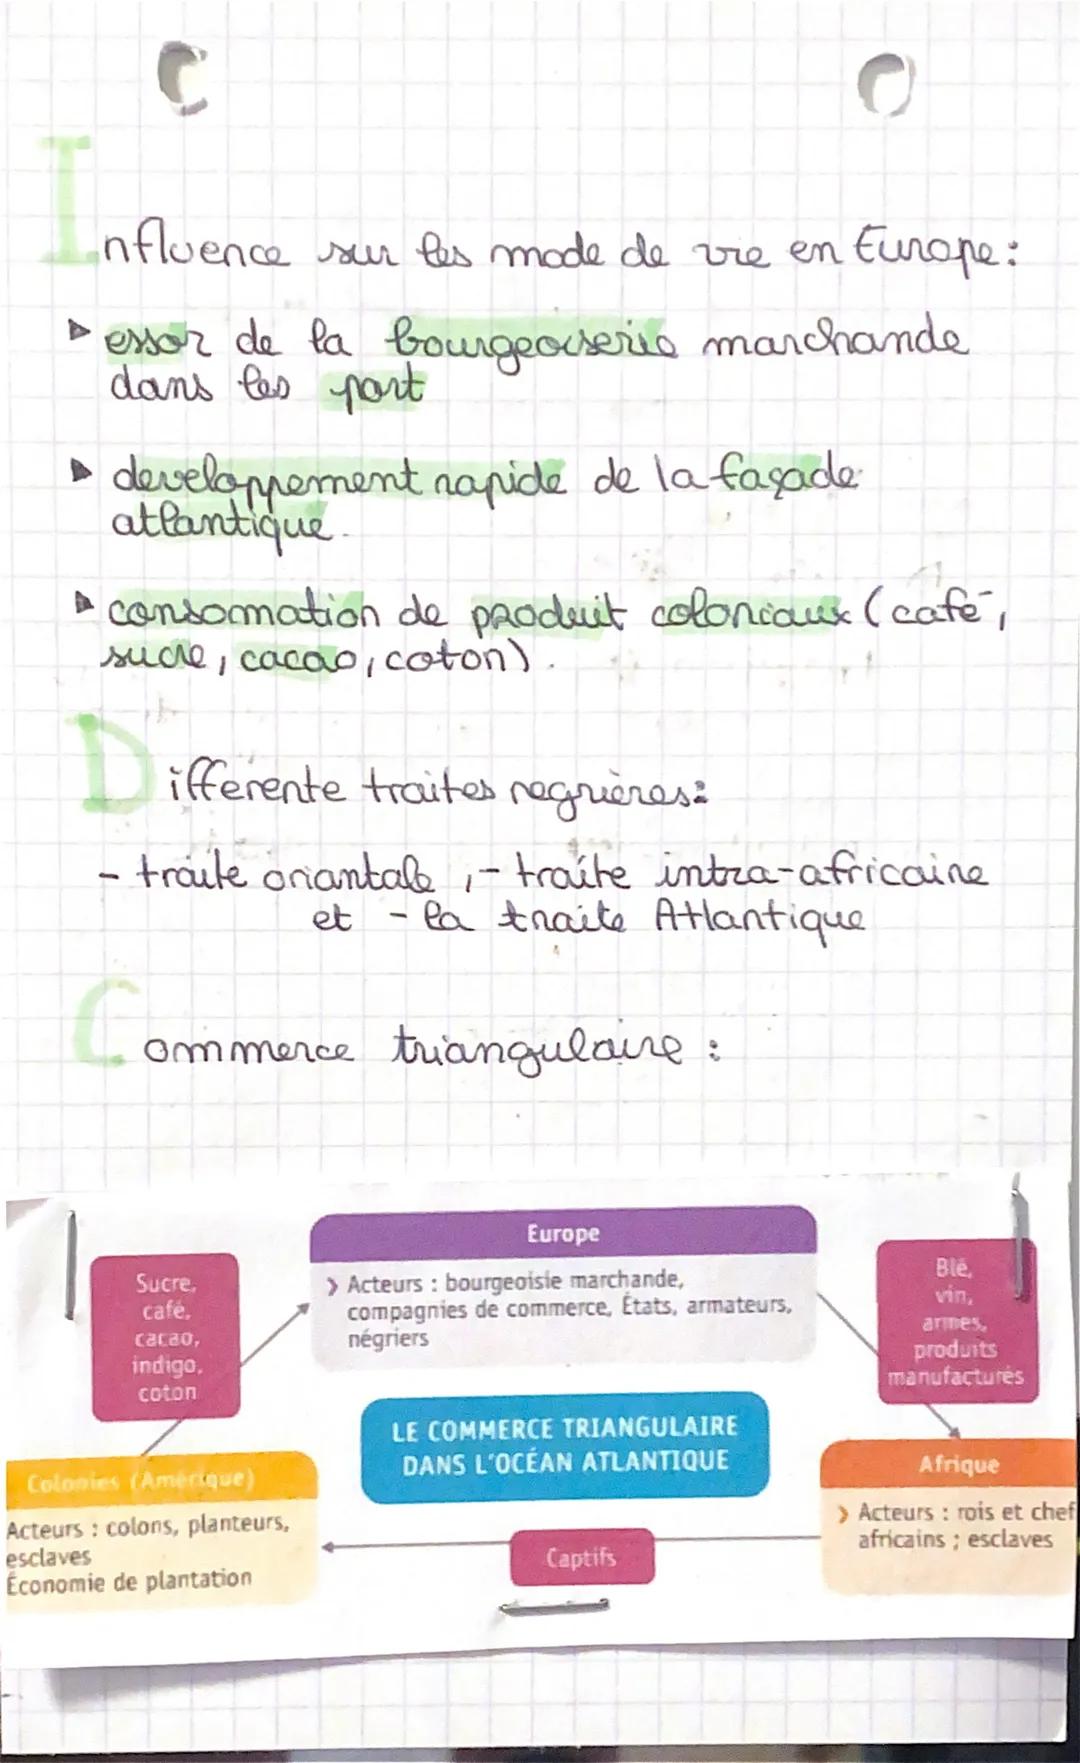 Influence sur les mode de vie en Europe :
▸ essor de la bourgeoiserie marchande
dans les port
▸ developpement rapide de la façade
atlantique.
▸ consommation de produit coloniaux (café,
sucre, cacao, coton).
Differente traites negrières :
- traite oriantale, - traite intra-africaine
et - la traite Atlantique
Commerce triangulaire :
Europe
› Acteurs : bourgeoisie marchande,
compagnies de commerce, États, armateurs,
négriers
Sucre,
café,
cacao,
indigo,
coton
Blé,
vin,
armes,
produits
manufacturés
LE COMMERCE TRIANGULAIRE
DANS L'OCÉAN ATLANTIQUE
Colonies (Amérique)
Acteurs : colons, planteurs,
esclaves
Économie de plantation
Captifs
Afrique
› Acteurs : rois et chef
africains ; esclaves